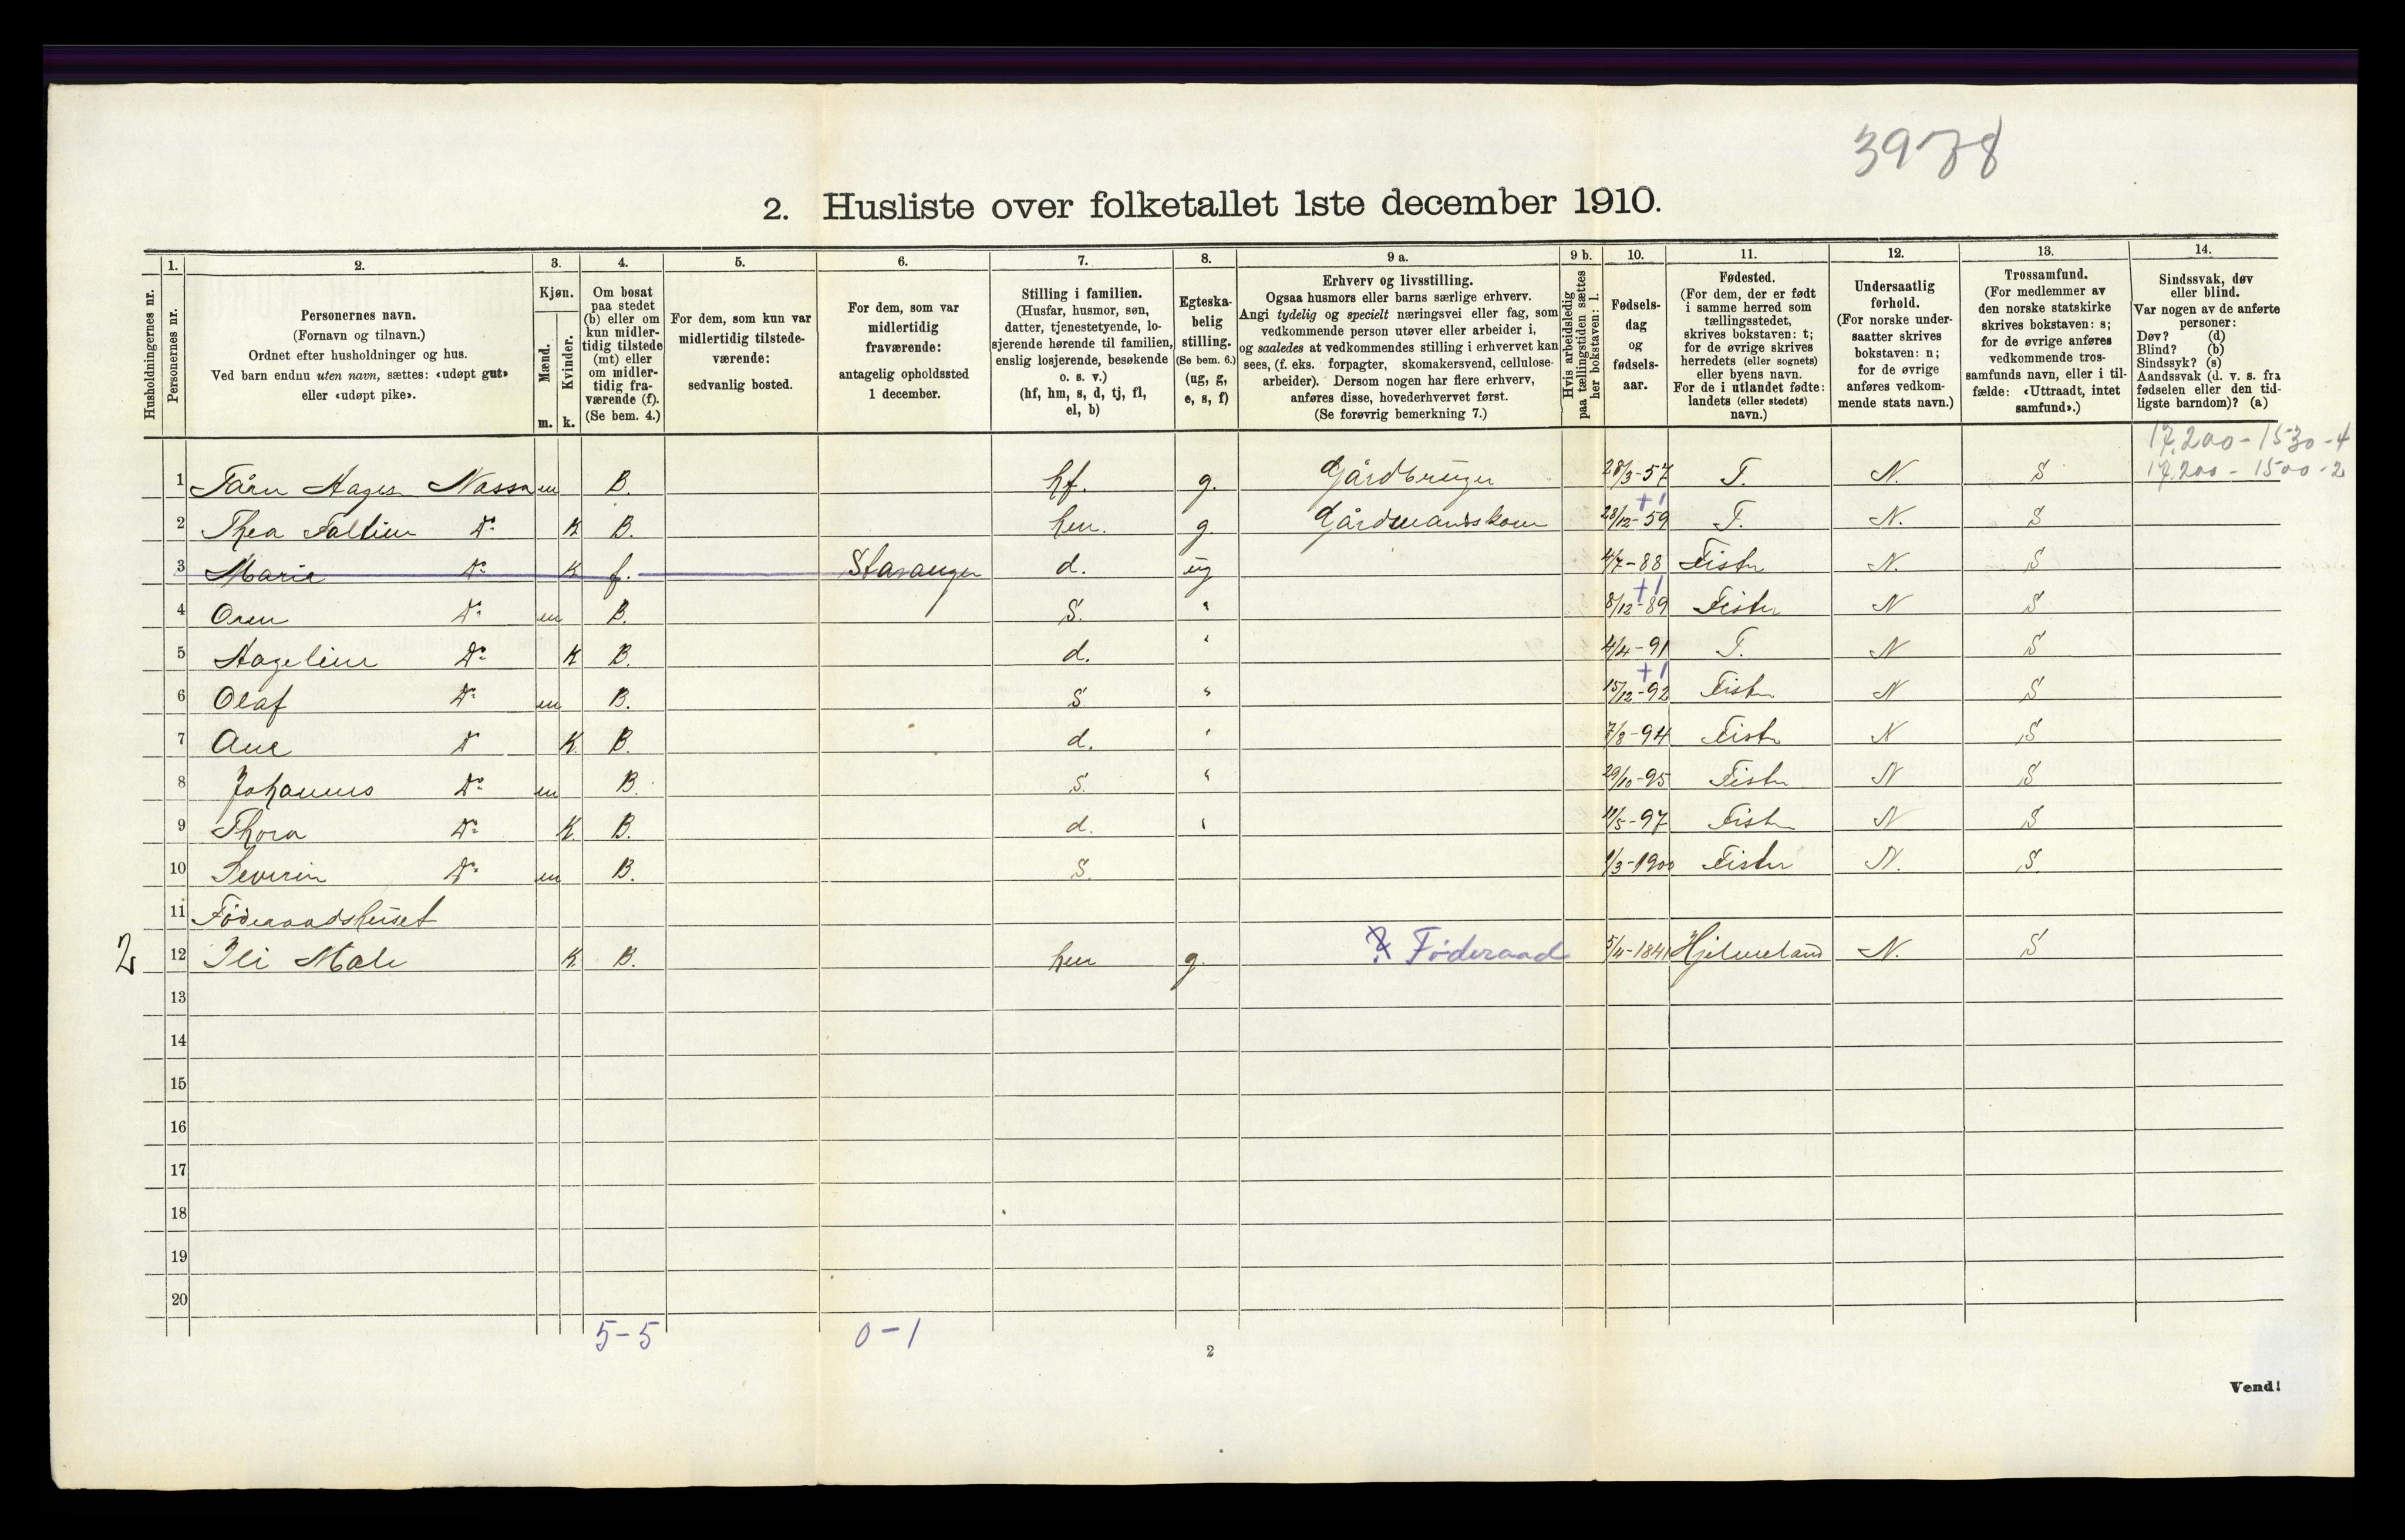 3978
2. Husliste over folketallet 1ste december 1910.
Husholdningernes nr.
1.
Personernes nr.
2.
Personernes navn.
(Fornavn og tilnavn.)
Ordnet efter husholdninger og hus.
Ved barn endnu uten navn, sættes: «udøpt gut»
eller «udøpt pike».
3.
Kjøn.
Mænd.
Kvinder.
m. k.
4.
Om bosat
paa stedet
(b) eller om
kun midler-
tidig tilstede
(mt) eller
om midler-
tidig fra-
værende (f).
(Se bem. 4.)
5.
For dem, som kun var
midlertidig tilstede-
værende:
sedvanlig bosted.
6.
For dem, som var
midlertidig
fraværende:
antagelig opholdssted
1 december.
7.
Stilling i familien.
(Husfar, husmor, søn,
datter, tjenestetyende, lo-
sjerende hørende til familien,
enslig losjerende, besøkende
o. s. v.)
(hf, hm, s, d, tj, fl,
el, b)
8.
Egteska-
belig
stilling.
(Se bem. 6.)
(ug, g,
e, s, f)
9 a.
Erhverv og livsstilling.
Ogsaa husmors eller barns særlige erhverv.
Angi tydelig og specielt næringsvei eller fag, som
vedkommende person utøver eller arbeider i,
og saaledes at vedkommendes stilling i erhvervet kan
sees, (f. eks. forpagter, skomakersvend, cellulose-
arbeider). Dersom nogen har flere erhverv,
anføres disse, hovederhvervet først.
(Se forøvrig bemerkning 7.)
9 b.
Hvis arbeidsledig
paa tællingstiden sættes
her bokstaven: l.
10.
Fødsels-
dag
og
fødsels-
aar.
11.
Fødested.
(For dem, der er født
i samme herred som
tællingsstedet,
skrives bokstaven: t;
for de øvrige skrives
herredets (eller sognets)
eller byens navn.
For de i utlandet fødte:
landets (eller stedets)
navn.)
12.
Undersaatlig
forhold.
(For norske under-
saatter skrives
bokstaven: n;
for de øvrige
anføres vedkom-
mende stats navn.)
13.
Trossamfund.
(For medlemmer av
den norske statskirke
skrives bokstaven: s;
for de øvrige anføres
vedkommende tros-
samfunds navn, eller i til-
fælde: «Uttraadt, intet
samfund».)
14.
Sindssvak, døv
eller blind.
Var nogen av de anførte
personer:
Døv? (d)
Blind? (b)
Sindssyk? (s)
Aandssvak (d. v. s. fra
fødselen eller den tid-
ligste barndom)? (a)
17.200 - 1530 - 4
17.200 - 1500 - 2
1 m B. hf. g. Gårdbruger 28/3-57 T. N. S
+1
2 Thea Do K B. hm. g. Gårdmandskone 28/12-59 T. N. S
3 Marie Do K f. Stavanger d. ug 4/7-88 Fister N. S
+1
4 Do m B. S. " 8/12-89 Fister N S
5 Do K B. d. " 4/4-91 T. N S
+1
6 Olaf Do m B. S " 15/12-92 Fister N S
7 Ane Do K. B. d. " 7/8-94 Fister N S
8 Johannes Do m B. S. " 29/10-95 Fister N S
9 Thora Do K B. d. " 11/5-97 Fister N S
10 Severin Do m B. S. 1/3-1900 Fister N. S.
11 Föderaadshuset
2 12 K B. hm g. ? Føderaad 5/4-1841 Hjelmeland N. S
13
14
15
16
17
18
19
20
5-5 0-1
2
Vend!